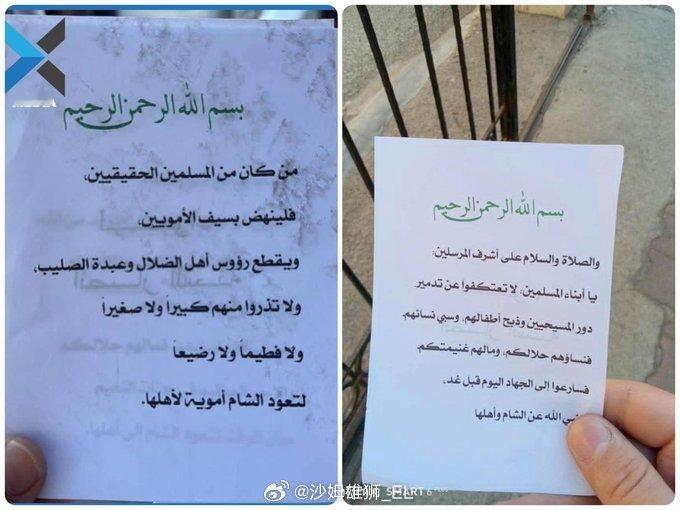 بسم الله الرحمن الرحيم
من كان من المسلمين الحقيقيين،
فلينهض بسيف الأمويين،
ويقطع رؤوس أهل الضلال وعبدة الصليب،
ولا تذروا منهم كبيراً ولا صغيراً
ولا فطيماً ولا رضيعاً
لتعود الشام أموية لأهلها.
بسم الله الرحمن الرحيم
والصلاة والسلام على أشرف المرسلين:
يا أبناء المسلمين: لا تعتكفوا عن تدمير
دور المسيحيين وذبح أطفالهم، وسبي نسائهم.
فنساؤهم حلالكم، ومالهم غنيمتكم.
فسارعوا إلى الجهاد اليوم قبل غد،
الله عن الشام وأهلها
@沙姆雄狮_EL
SMART 6